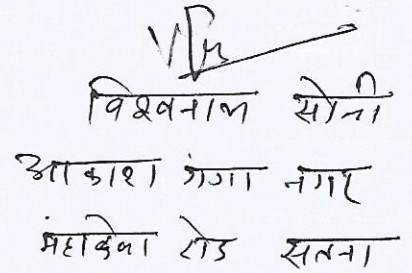 विश्वनाथ सोनी
आकाश गंगा नगर
महादेवा रोड सतना